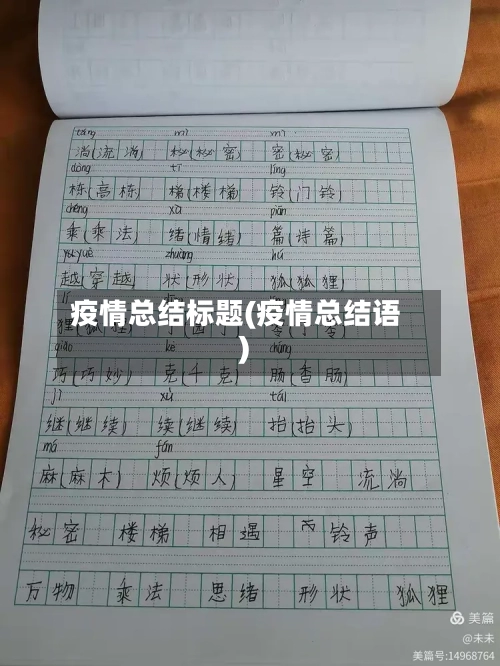 tǎng mì mì
淌(流淌) 秘(秘密) 密(秘密)
dòng tī líng
栋(高栋) 梯(楼梯) 铃(门铃)
chéng xù piān
乘(乘法) 绪(情绪) 篇(诗篇)
yuè zhuàng hú
越(穿越) 状(形状) 狐(狐狸)
疫情总结标题(疫情总结语
)
qiǎo kè cháng
巧(巧妙) 克(千克) 肠(香肠)
jì xù tái
继(继续) 续(继续) 抬(抬头)
má fán
麻(麻木) 烦(烦人) 星空 流淌
秘密 楼梯 相遇 铃声
万物 乘法 思绪 形状 狐狸
美篇
@未未
美篇号:14968764